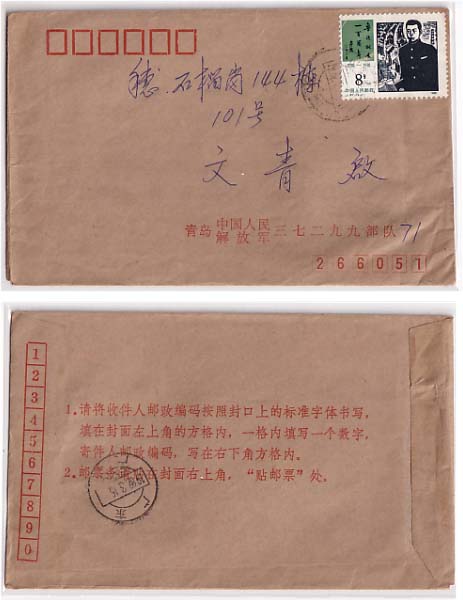 穗.石榴岗144栋
101号
文青啟
8分
中国人民邮政
青岛 中国人民
解放军 三七二九九部队71
266051
1
2
3
4
5
6
7
8
9
0
1.请将收件人邮政编码按照封口上的标准字体书写,
填在封面左上角的方格内,一格内填写一个数字,
寄件人邮政编码,写在右下角方格内。
2.邮票务请贴在封面右上角,“贴邮票”处。
广东